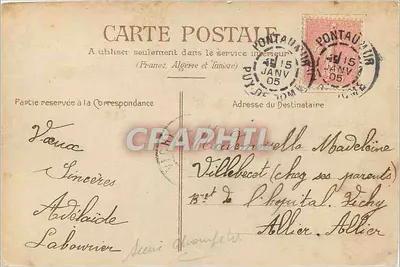 CARTE POSTALE
A utiliser seulement dans le service intérieur
(France, Algérie et Tunisie)
Partie réservée à la Correspondance
Adresse du Destinataire
PONTAUMUR
15
JANV
05
PUY-DE-DOME
PONTAUMUR
15
JANV
05
CPAPHIL
Vœux
Sincères
Adélaïde
Labourier
Mademoiselle Madeleine
Villebecot (chez ses parents)
Bret de l'hopital Vichy
Allier. Allier